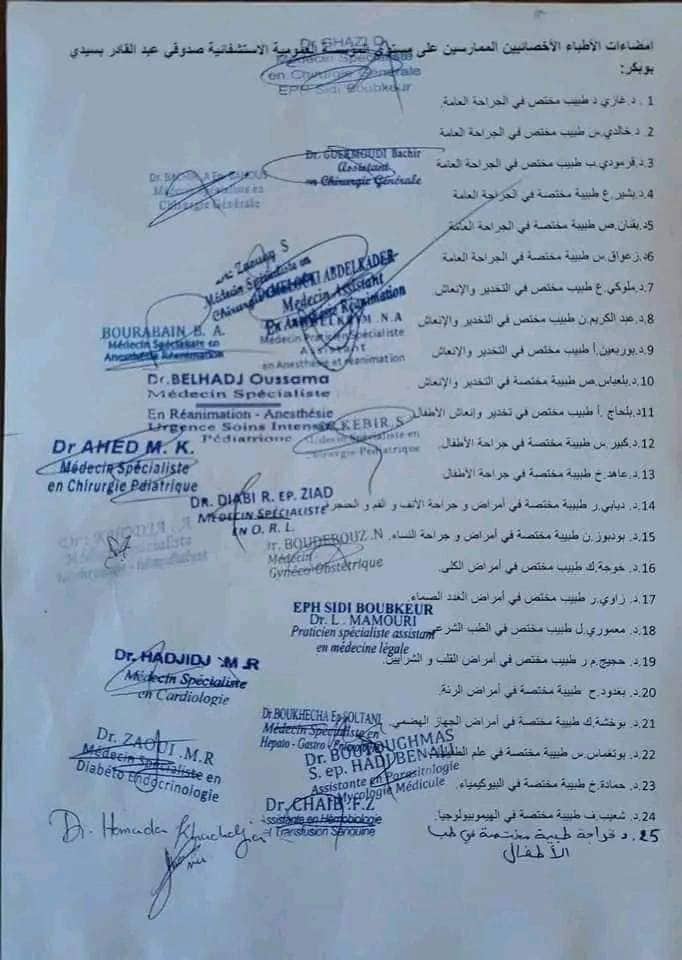 امضاءات الأطباء الأخصائيين الممارسين على مستوى المؤسسة العمومية الاستشفائية صدوقي عبد القادر بسيدي
بوبكر:
Dr. GHAZI D
Médecin Spécialiste
en Chirurgie Générale
EPH Sidi Boubkeur
1 .د.غازي د طبيب مختص في الجراحة العامة.
2 .د. خالدي.س طبيب مختص في الجراحة العامة
3.د.قرمودي.ب طبيب مختص في الجراحة العامة
Dr. GUERMOUDI Bachir
Assistant
en Chirurgie Générale
4.د.بشير.ع طبيبة مختصة في الجراحة العامة
Médecin Spécialiste en
Chirurgie Générale
5د.بقنان.ص طبيبة مختصة في الجراحة العامة
6د.زعواق.س طبيبة مختصة في الجراحة العامة
Zaouag S
Médecin Spécialiste en
Chirurgie
7.د.ملوكي.ع طبيب مختص في التخدير والإنعاش.
MELOUKI ABDELKADER
Médecin Assistant
En Anesthésie Réanimation
8.د.عبد الكريم.ن طبيب مختص في التخدير والإنعاش
N.A
Médecin Praticien Spécialiste
Assistant
en Anesthésie et réanimation
9.د.بوربعين.أ طبيب مختص في التخدير والإنعاش
BOURABAIN B. A.
Médecin Spécialiste en
Anesthésie Réanimation
10.د.بلعباس.ص طبيبة مختصة في التخدير والإنعاش
11د.بلحاج .أ طبيب مختص في تخدير وإنعاش الأطفال
Dr.BELHADJ Oussama
Médecin Spécialiste
En Réanimation - Anesthésie
Urgence Soins Intensifs
Pédiatrique
12.د. كبير.س طبيبة مختصة في جراحة الأطفال.
KEBIR S
Médecin Spécialiste en
Chirurgie Pédiatrique
13.د. عاهد.خ طبيب مختص في جراحة الأطفال
Dr AHED M. K.
Médecin Spécialiste
en Chirurgie Pédiatrique
14.د. ديابي.ر طبيبة مختصة في أمراض و جراحة الأنف و الفم و الحنجر
DR. DIABI R. EP. ZIAD
MEDECIN SPÉCIALISTE
EN O. R. L
15.د. بودبوز.ن طبيبة مختصة في أمراض و جراحة النساء.
Dr. BOUDEBOUZ .N
Médecin
Gynéco-Obstétrique
16.د. خوجة.ك طبيب مختص في أمراض الكلى.
17.د. زاوي.ر طبيب مختص في أمراض الغدد الصماء.
18.د. معموري.ل طبيب مختص في الطب الشرعي
EPH SIDI BOUBKEUR
Dr. L . MAMOURI
Praticien spécialiste assistant
en médecine légale
19.د. حجيج.م ر طبيب مختص في أمراض القلب و الشرايين.
Dr. HADJIDJ .M .R
Médecin Spécialiste
en Cardiologie
20.د. بغدود.ح طبيبة مختصة في أمراض الرئة.
21.د. بوخشة.ك طبيبة مختصة في أمراض الجهاز الهضمي.
Dr.BOUKHECHA Ep SOLTANI
Médecin Spécialiste en
Hepato - Gastro
22.د. بوتغماس.س طبيبة مختصة في علم
Dr. BOUTOUGHMAS
S. ep. HADJ BENALI
Assistante en Parasitologie
Mycologie Médicule
Dr. ZAOUI .M.R
Médecin Spécialiste en
Diabéto Endocrinologie
23.د. حمادة.خ طبيبة مختصة في البيوكيمياء.
24.د. شعيب.ف طبيبة مختصة في الهيموبيولوجيا.
Dr. CHAIB F.Z
Assistante en Hémobiologie
et Transfusion Sanguine
25.د خواجة طبيبة مختصة في طب
الأطفال
Dr. Hamada Khadidja